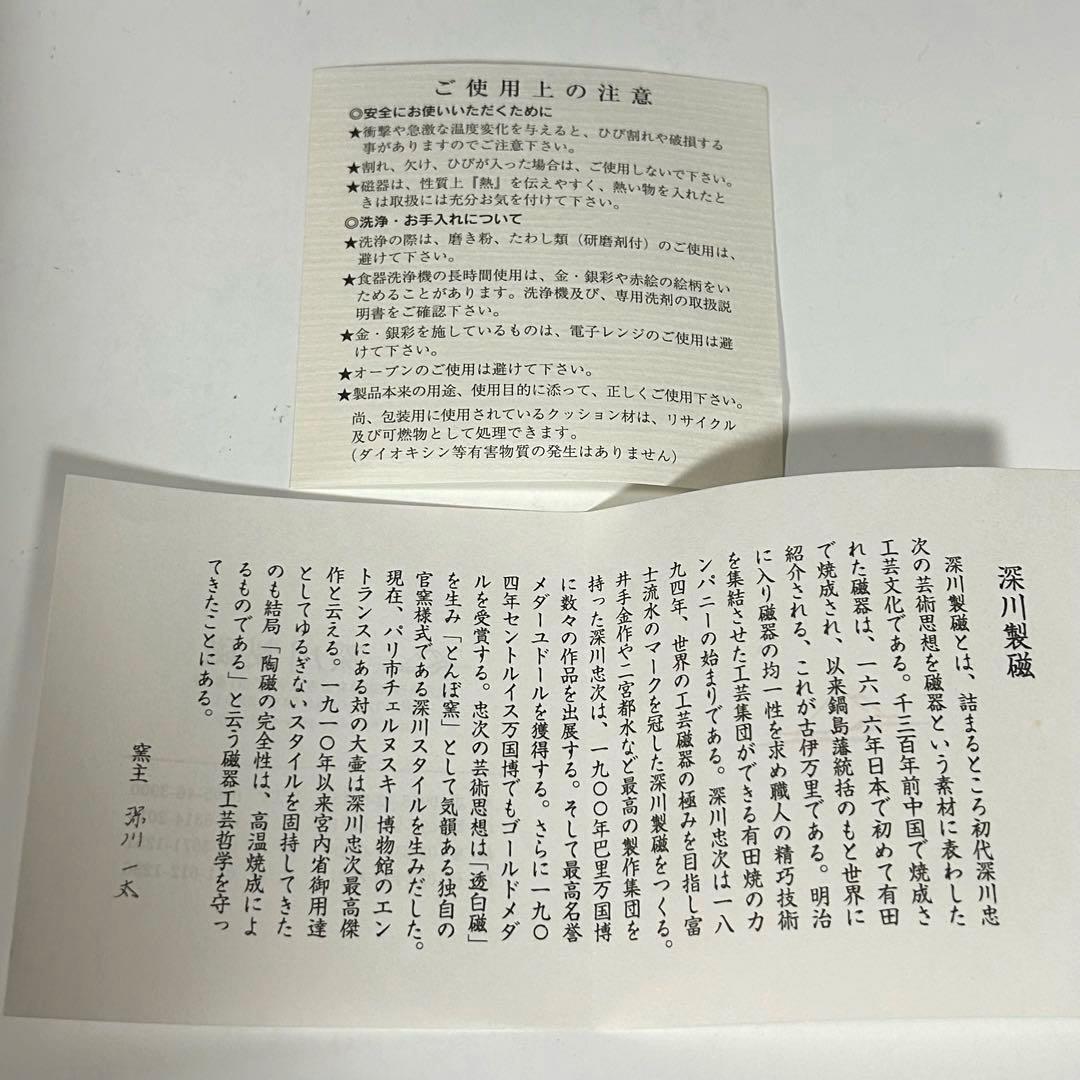 ご使用上の注意
◎安全にお使いいただくために
★衝撃や急激な温度変化を与えると、ひび割れや破損する
事がありますのでご注意下さい。
★割れ、欠け、ひびが入った場合は、ご使用しないで下さい。
★磁器は、性質上『熱』を伝えやすく、熱い物を入れたと
きは取扱には充分お気を付けて下さい。
◎洗浄・お手入れについて
★洗浄の際は、磨き粉、たわし類（研磨剤付）のご使用は、
避けて下さい。
★食器洗浄機の長時間使用は、金・銀彩や赤絵の絵柄をい
ためることがあります。洗浄機及び、専用洗剤の取扱説
明書をご確認下さい。
★金・銀彩を施しているものは、電子レンジのご使用は避
けて下さい。
★オーブンのご使用は避けて下さい。
★製品本来の用途、使用目的に添って、正しくご使用下さい。
尚、包装用に使用されているクッション材は、リサイクル
及び可燃物として処理できます。
(ダイオキシン等有害物質の発生はありません)
深川製磁
深川製磁とは、詰まるところ初代深川忠
次の芸術思想を磁器という素材に表わした
工芸文化である。千三百年前中国で焼成さ
れた磁器は、一六一六年日本で初めて有田
で焼成され、以来鍋島藩統括のもと世界に
紹介される、これが古伊万里である。明治
に入り磁器の均一性を求め職人の精巧技術
を集結させた工芸集団ができる有田焼のカ
ンパニーの始まりである。深川忠次は一八
九四年、世界の工芸磁器の極みを目指し富
士流水のマークを冠した深川製磁をつくる。
井手金作や二宮都水など最高の製作集団を
持った深川忠次は、一九〇〇年巴里万国博
に数々の作品を出展する。そして最高名誉
メダーユドールを獲得する。さらに一九〇
四年セントルイス万国博でもゴールドメダ
ルを受賞する。忠次の芸術思想は「透白磁」
を生み「とんぼ窯」として気韻ある独自の
官窯様式である深川スタイルを生みだした。
現在、パリ市チェルヌスキー博物館のエン
トランスにある対の大壷は深川忠次最高傑
作と云える。一九一〇年以来宮内省御用達
としてゆるぎないスタイルを固持してきた
のも結局「陶磁の完全性は、高温焼成によ
るものである」と云う磁器工芸哲学を守っ
てきたことにある。
窯主 深川一太